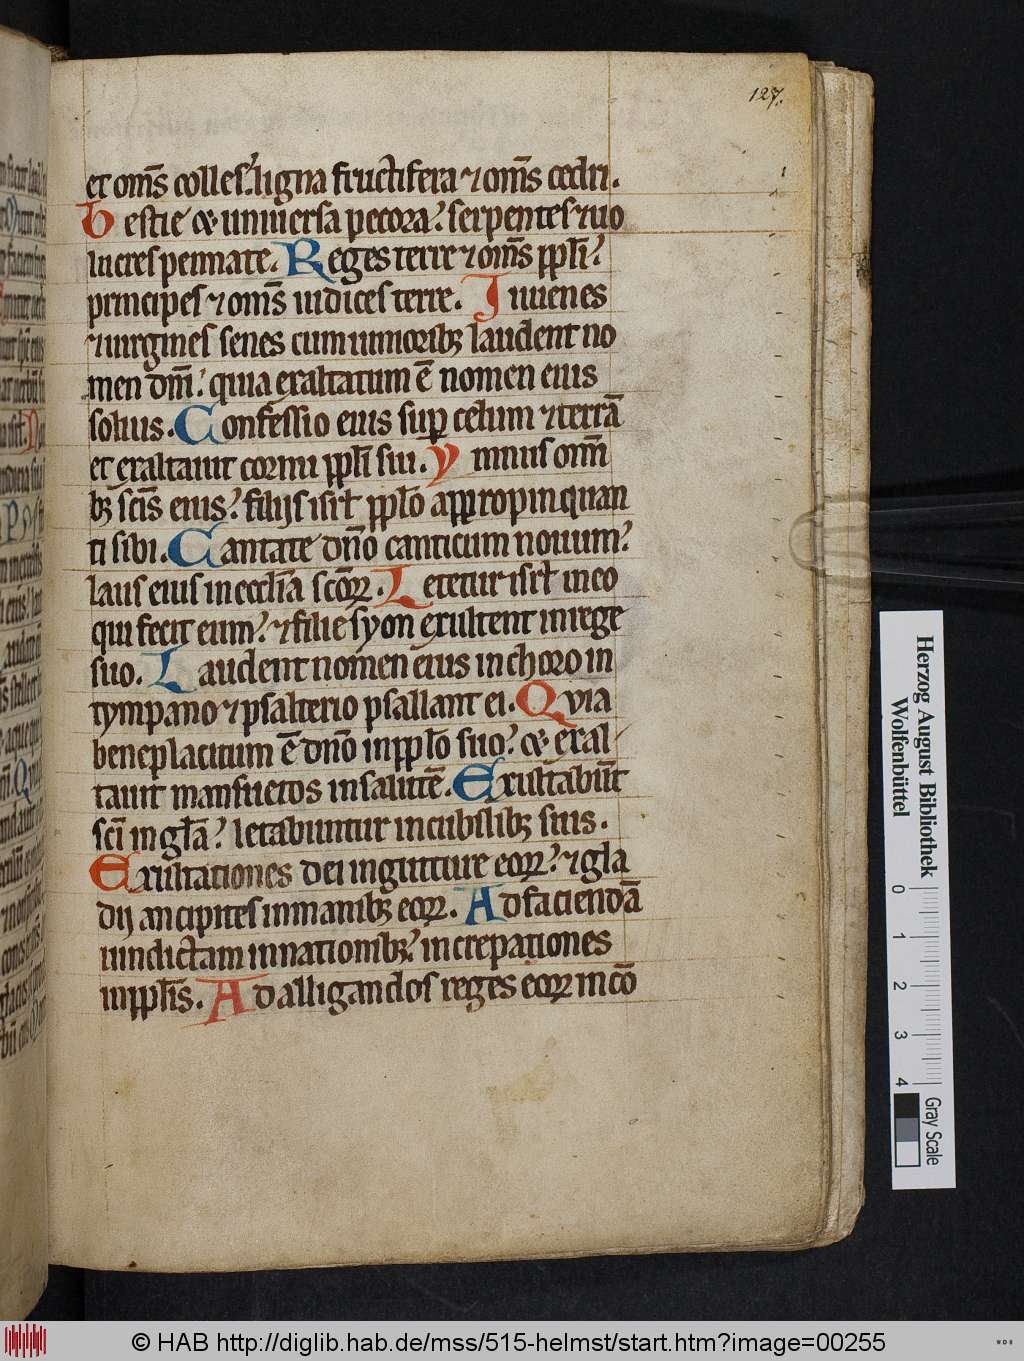 127.
et om̄s colles: ligna fructifera ⁊ om̄s cedri.
Bestie & uniuersa pecora: serpentes ⁊ uo
lucres pennate. Reges terre ⁊ om̄s ppl̄i:
principes ⁊ om̄s iudices terre. Iuuenes
⁊ uirgines senes cum iunioribꝫ laudent no
men dn̄i: quia exaltatum ē nomen eius
solius. Confessio eius suꝑ celum ⁊ terrā
et exaltauit cornu ppl̄i sui. Ymnus omni
bꝫ scīs eius: filijs isrl̄ ppl̄o appropinquan
ti sibi. Cantate dn̄o canticum nouum:
laus eius in eccl̄ia scōꝝ. Letetur isrl̄ in eo
qui fecit eum: ⁊ filie syon exultent in rege
suo. Laudent nomen eius in choro in
tympano ⁊ psalterio psallant ei. Qvia
beneplacitum ē dn̄o in ppl̄o suo: & exal
tauit mansuetos in salutē. Exultabūt
scī in gl̄a: letabuntur in cubilibꝫ suis.
Exultationes dei in gutture eoꝝ: ⁊ gla
dij ancipites in manibꝫ eoꝝ. Ad faciendā
uindictam in nationibꝫ: increpationes
in ppl̄is. Ad alligandos reges eoꝝ in cō
Herzog August Bibliothek
Wolfenbüttel
0 1 2 3 4
Gray Scale
© HAB http://diglib.hab.de/mss/515-helmst/start.htm?image=00255